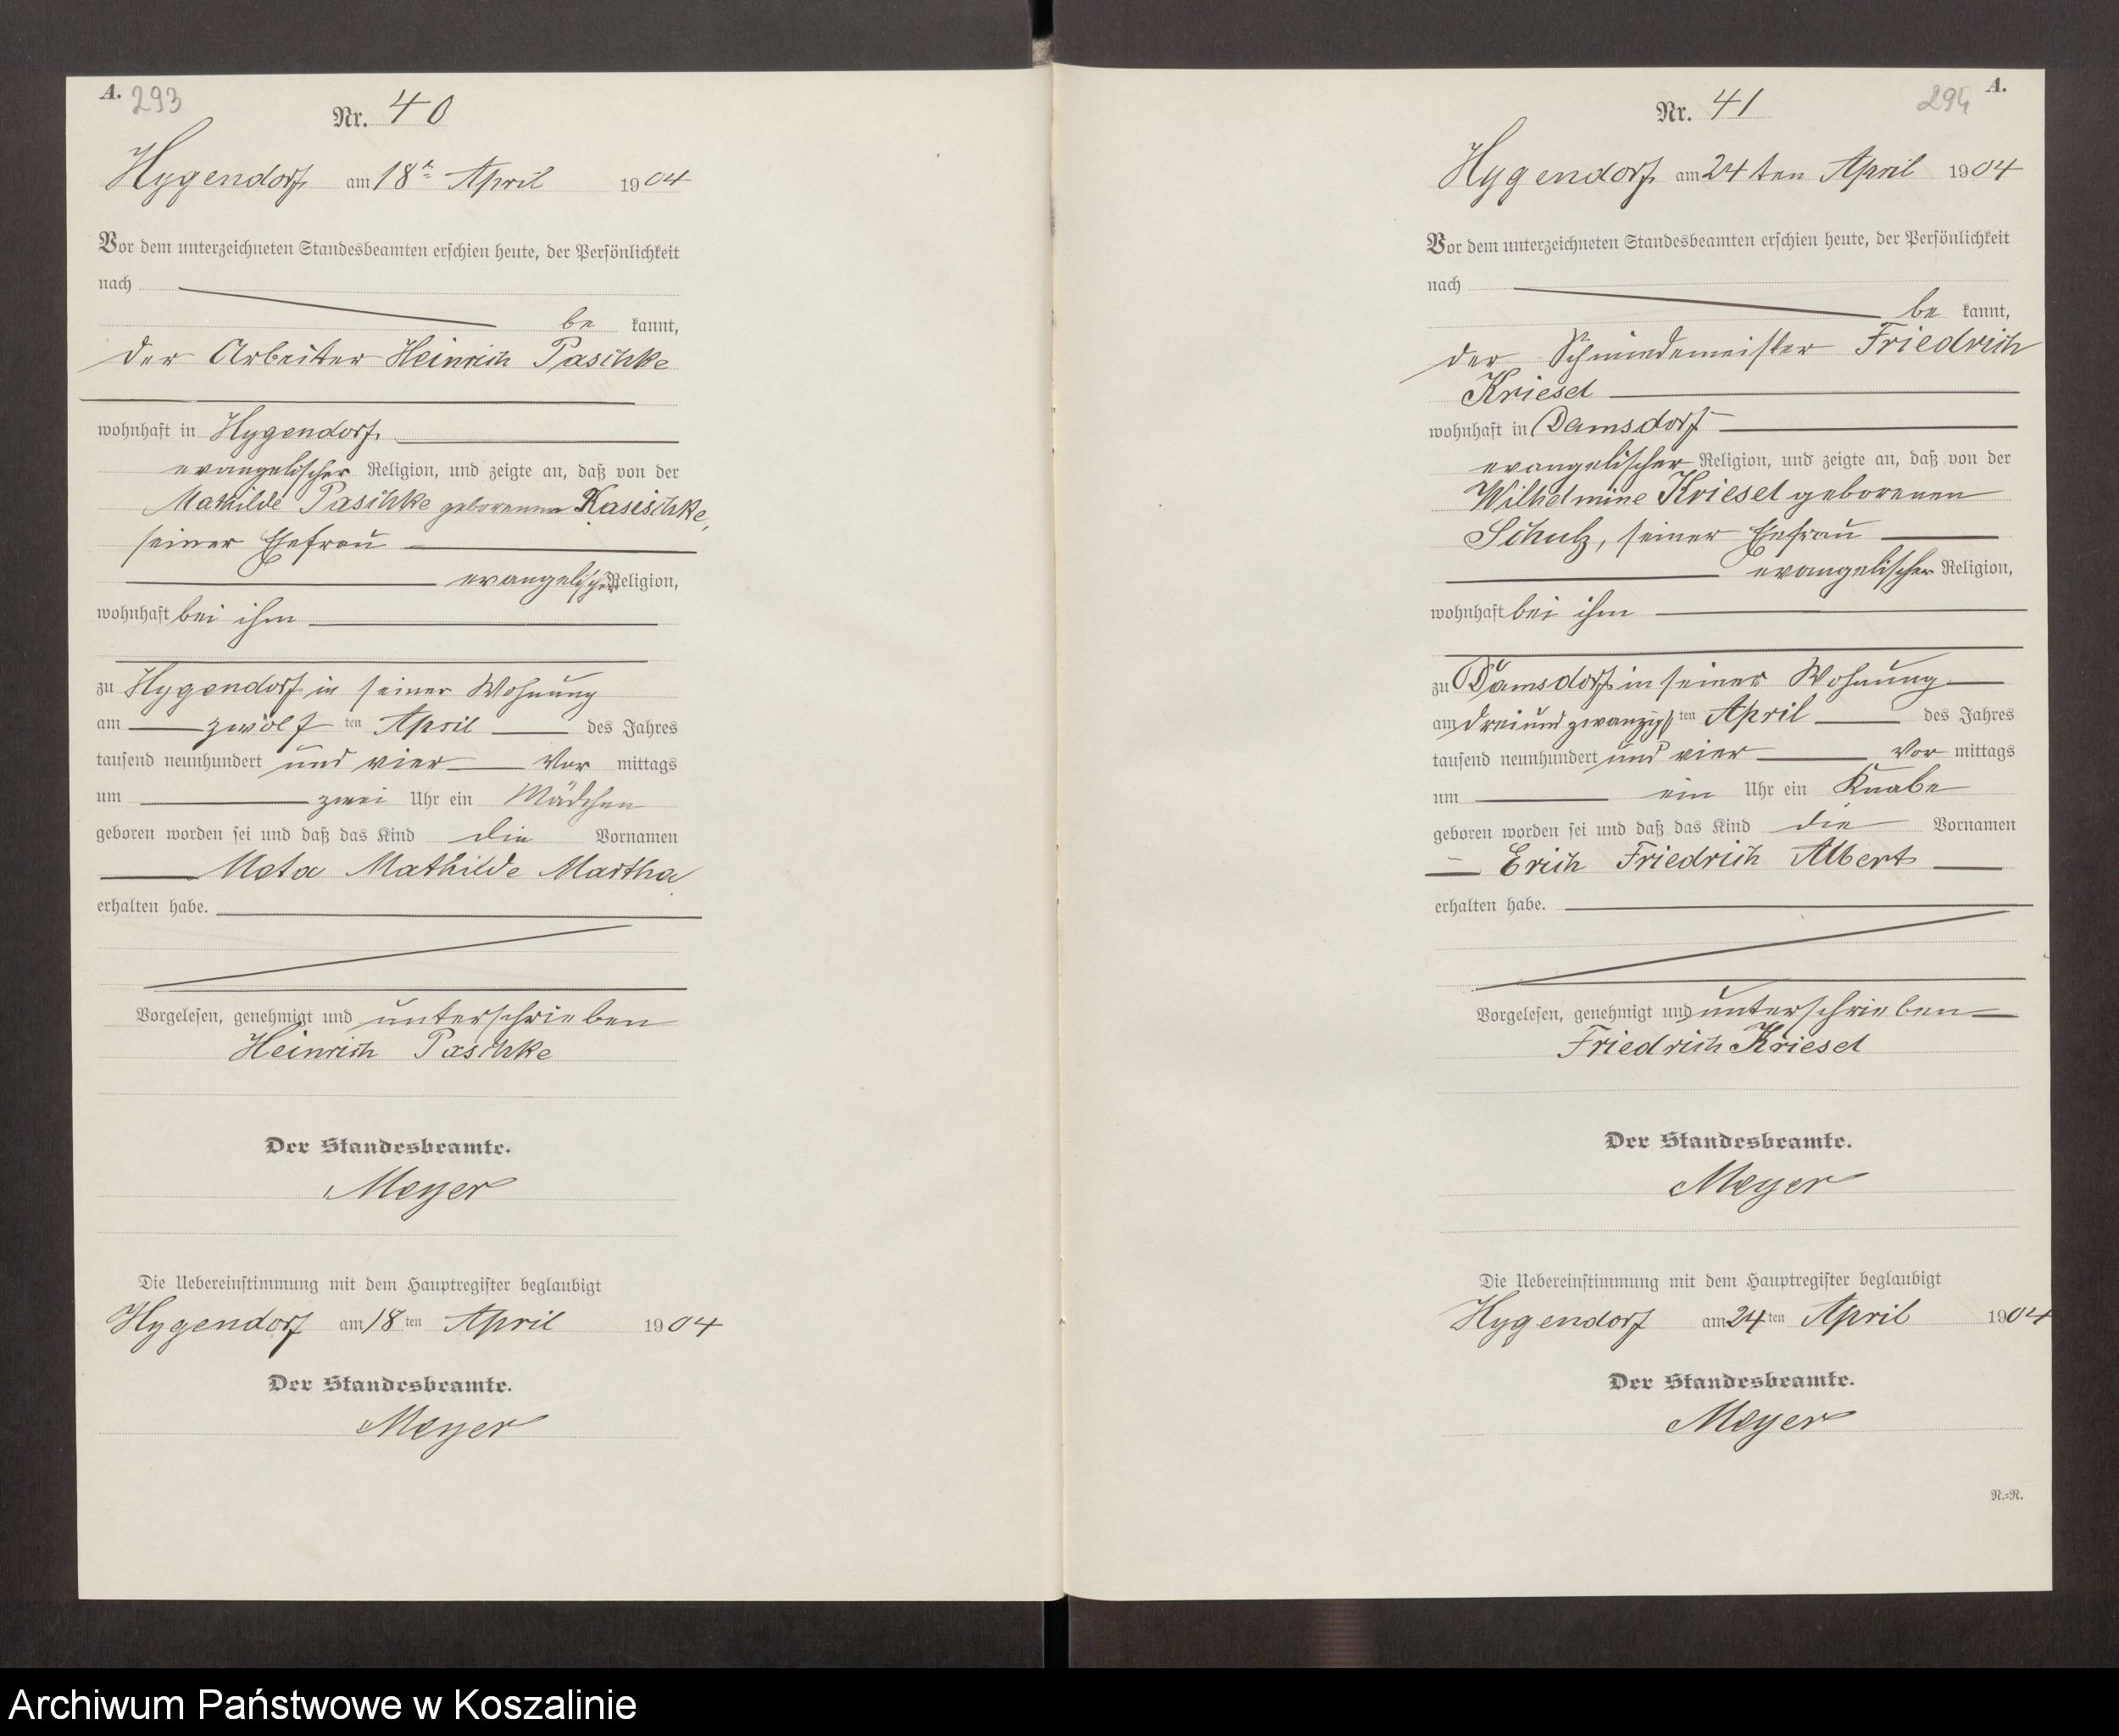 A. 293
Nr. 40
Hygendorf am 18ten April 1904
Vor dem unterzeichneten Standesbeamten erschien heute, der Persönlichkeit
nach
be kannt,
der Arbeiter Heinrich Paschke
wohnhaft in Hygendorf
evangelischer Religion, und zeigte an, daß von der
Mathilde Paschke geborenen Kasischke,
seiner Ehefrau
evangelischer Religion,
wohnhaft bei ihm
zu Hygendorf in seiner Wohnung
am zwölf ten April des Jahres
tausend neunhundert und vier Vor mittags
um zwei Uhr ein Mädchen
geboren worden sei und daß das Kind die Vornamen
Meta Mathilde Martha
erhalten habe.
Vorgelesen, genehmigt und unterschrieben
Heinrich Paschke
Der Standesbeamte.
Meyer
Die Uebereinstimmung mit dem Hauptregister beglaubigt
Hygendorf am 18 ten April 1904
Der Standesbeamte.
Meyer
294 A.
Nr. 41
Hygendorf am 24ten April 1904
Vor dem unterzeichneten Standesbeamten erschien heute, der Persönlichkeit
nach
be kannt,
der Schmiedemeister Friedrich
Kriesel
wohnhaft in Damsdorf
evangelischer Religion, und zeigte an, daß von der
Wilhelmine Kriesel geborenen
Schulz, seiner Ehefrau
evangelischer Religion,
wohnhaft bei ihm
zu Damsdorf in seiner Wohnung
am dreiundzwanzigs ten April des Jahres
tausend neunhundert und vier Vor mittags
um ein Uhr ein Knabe
geboren worden sei und daß das Kind die Vornamen
Erich Friedrich Albert
erhalten habe.
Vorgelesen, genehmigt und unterschrieben
Friedrich Kriesel
Der Standesbeamte.
Meyer
Die Uebereinstimmung mit dem Hauptregister beglaubigt
Hygendorf am 24 ten April 1904
Der Standesbeamte.
Meyer
N.=R.
Archiwum Państwowe w Koszalinie